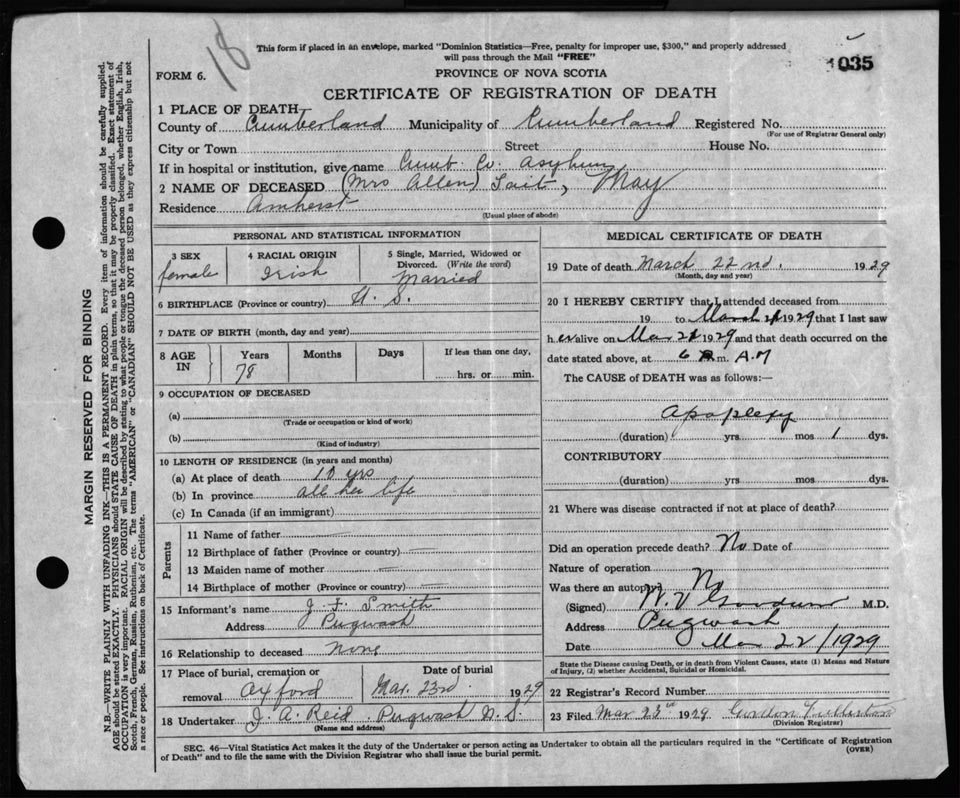 18
This form if placed in an envelope, marked "Dominion Statistics—Free, penalty for improper use, $300," and properly addressed
will pass through the Mail "FREE"
035
FORM 6.
PROVINCE OF NOVA SCOTIA
CERTIFICATE OF REGISTRATION OF DEATH
1 PLACE OF DEATH
County of Cumberland Municipality of Cumberland Registered No.
(For use of Registrar General only)
City or Town Street House No.
If in hospital or institution, give name Cumb. Co. Asylum
2 NAME OF DECEASED (Mrs Allen) Tait, May
Residence Amherst
(Usual place of abode)
PERSONAL AND STATISTICAL INFORMATION
3 SEX
female
4 RACIAL ORIGIN
Irish
5 Single, Married, Widowed or
Divorced. (Write the word)
Married
6 BIRTHPLACE (Province or country) N. S.
7 DATE OF BIRTH (month, day and year)
8 AGE
IN
Years Months Days If less than one day,
78 hrs. or min.
9 OCCUPATION OF DECEASED
(a)
(Trade or occupation or kind of work)
(b)
(Kind of industry)
10 LENGTH OF RESIDENCE (in years and months)
(a) At place of death 10 yrs
(b) In province all her life
(c) In Canada (if an immigrant)
Parents
11 Name of father
12 Birthplace of father (Province or country)
13 Maiden name of mother
14 Birthplace of mother (Province or country)
15 Informant's name J. F. Smith
Address Pugwash
16 Relationship to deceased None
17 Place of burial, cremation or
removal Oxford
Date of burial
Mar. 23rd 1929
18 Undertaker J. A. Reid Pugwash N. S.
(Name and address)
MEDICAL CERTIFICATE OF DEATH
19 Date of death March 22nd. 1929
(Month, day and year)
20 I HEREBY CERTIFY that I attended deceased from
19 to March 21 1929 that I last saw
her alive on Mar 21 1929 and that death occurred on the
date stated above, at 6 m. A.M
The CAUSE of DEATH was as follows:—
Apoplexy
(duration) yrs mos 1 dys.
CONTRIBUTORY
(duration) yrs mos dys.
21 Where was disease contracted if not at place of death?
Did an operation precede death? No Date of
Nature of operation
Was there an autopsy No
(Signed) M.D.
Address Pugwash
Date Mar 22/1929
State the Disease causing Death, or in death from Violent Causes, state (1) Means and Nature
of Injury, (2) whether Accidental, Suicidal or Homicidal.
22 Registrar's Record Number
23 Filed Mar 23rd 1929 Gordon Fullerton
(Division Registrar)
SEC. 46—Vital Statistics Act makes it the duty of the Undertaker or person acting as Undertaker to obtain all the particulars required in the "Certificate of Registration
of Death" and to file the same with the Division Registrar who shall issue the burial permit.
(OVER)
MARGIN RESERVED FOR BINDING
N.B.—WRITE PLAINLY WITH UNFADING INK—THIS IS A PERMANENT RECORD. Every item of information should be carefully supplied.
AGE should be stated EXACTLY. PHYSICIANS should STATE CAUSE OF DEATH in plain terms, so that it may be properly classified. Exact statement of
OCCUPATION is very important. RACIAL ORIGIN will be described by stating to what people or tongue the deceased person belonged, whether English, Irish,
Scotch, French, German, Russian, Ruthenian, etc. The terms "AMERICAN" or "CANADIAN" SHOULD NOT BE USED as they express citizenship but not
a race or people. See instructions on back of Certificate.